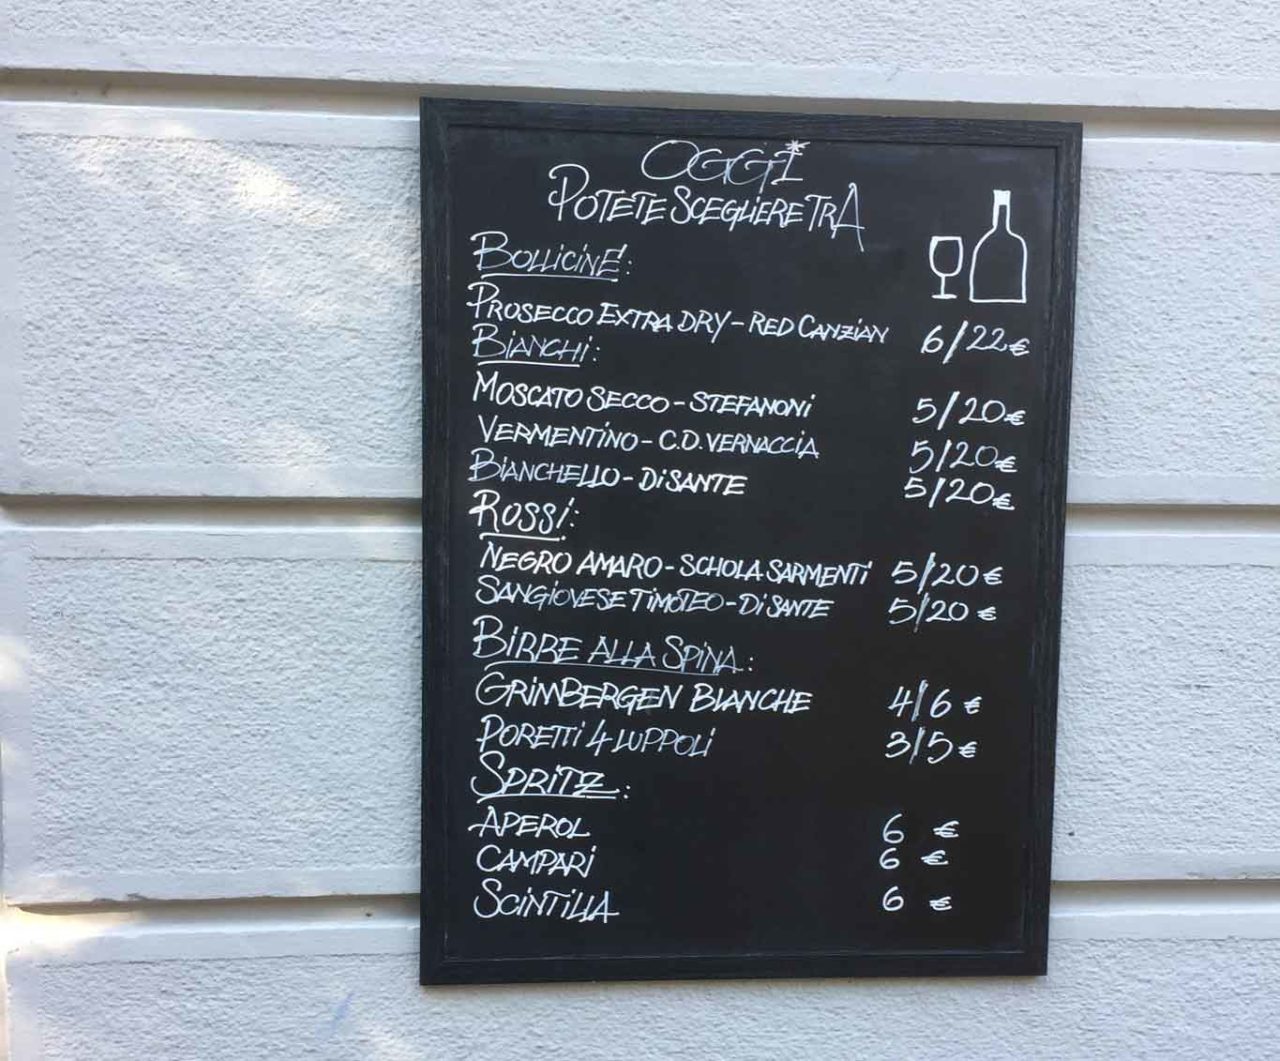 OGGI
POTETE SCEGLIERE TRA
BOLLICINE:
PROSECCO EXTRA DRY - RED CANZIAN 6/22€
BIANCHI:
MOSCATO SECCO - STEFANONI 5/20€
VERMENTINO - C.D. VERNACCIA 5/20€
BIANCHELLO - DI SANTE 5/20€
ROSSI:
NEGRO AMARO - SCHOLA SARMENTI 5/20€
SANGIOVESE TIMOTEO - DI SANTE 5/20€
BIRRE ALLA SPINA:
GRIMBERGEN BLANCHE 4/6€
PORETTI 4 LUPPOLI 3/5€
SPRITZ:
APEROL 6 €
CAMPARI 6 €
SCINTILLA 6 €